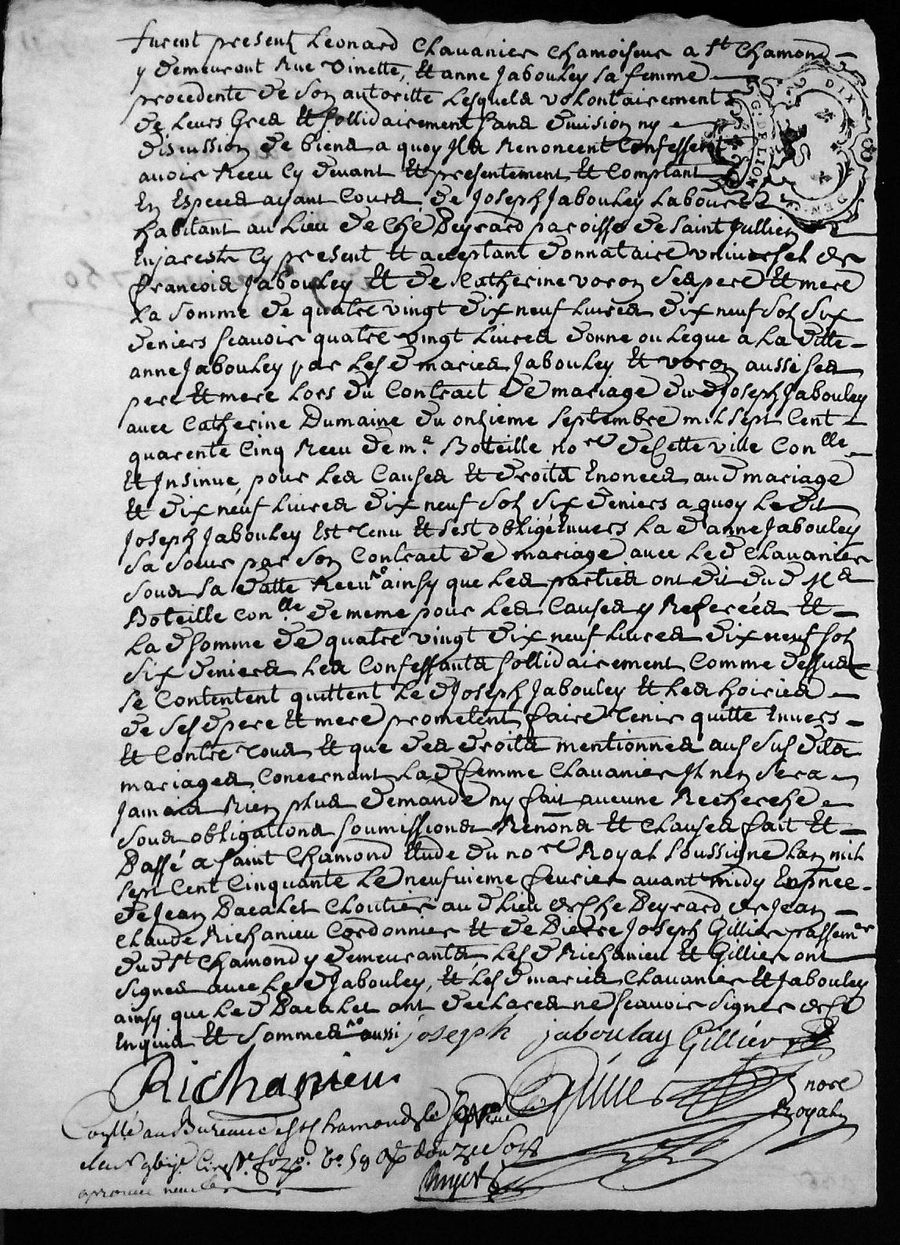 furent presents Leonard Chavanier Chamoiseur a St Chamond
y demeurant Rue Vinette, et anne Jabouley sa femme
procedente de son autoritte Lesquels volontairement
de Leurs Grés et sollidairement sans division ny
discussion de biens a quoy Ils Renoncent Confessent
avoir Receu Cy devant et presentement et Comptant
En Especes ayant Cours de Joseph Jabouley Laboureur
habitant au Lieu de Ché Beyrard paroisse de Saint Jullien
Enjareste Cy present et acceptant donnataire universel de
francois Jabouley et de Catherine voron Ses pere et mere
La Somme de quatre vingt dix neuf Livres dix neuf Sols Six
deniers scavoir quatre vingt Livres donne ou Legué a La ditte
anne Jabouley par Les d maries Jabouley et voron aussi ses
pere et mere Lors du Contract de mariage du d Joseph Jabouley
avec Catherine Dumaine du onzieme Septembre mil Sept Cent
quarente Cinq Receu de me Boteille nore de Cette ville Conlle
et Insinue, pour Les Causes et droits Enonces au d mariage
et dix neuf Livres dix neuf Sols Six deniers a quoy Le dit
Joseph Jabouley Est tenu et s'est obligé Envers La d anne Jabouley
Sa Soeur par Son Contract de mariage avec Le d Chavanier
Sous Sa datte Receu ainsy que Les parties ont dit du d Me
Boteille Conlle de meme pour Les Causes y Referées et
La d Somme de quatre vingt dix neuf Livres dix neuf Sols
Six deniers Les Confessants sollidairement Comme dessus
Se Contentent quittent Le d Joseph Jabouley et Les hoiries
de Ses d pere et mere prometent faire tenir quitte Envers
et Contre tous et que des droits mentionnes aus Sus dits
mariages Concernant La d femme Chavanier Il n'en Sera
Jamais Rien plus demande ny fait aucune Recherche
Sous obligations Soumissions Renons et Clauses fait et
Passé a Saint Chamond Etude du nore Royal Soussigne Lan mil
Sept Cent Cinquante Le neufvieme fevrier avant midy En pnce
de Jean Bacalet Cloutier au d Lieu de Che Beyrard de Jean
Claude Richanieu Cordonnier et de Pierre Joseph Gillier passemr
du d St Chamond y demeurants, Les d Richanieu et Gillier ont
Signes avec Le d Jabouley, et Les d maries Chavanier et Jabouley
ainsy que Le d Bacalet ont declares ne Scavoir Signer de Ce
Enquis et Sommes aussi joseph jaboulay Gillier
Richanieu
nore
Royal
au Bureau de St chamond le